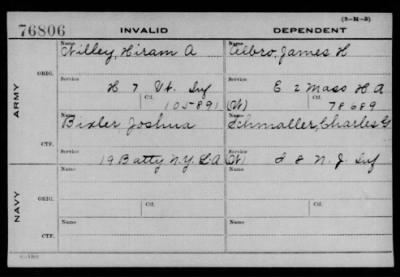 (3-M-3)
76806 INVALID DEPENDENT
Name Name
Willey, Hiram A Albro, James H
ARMY
ORIG.
Service Service
H 7 Vt. Inf E 2 Mass H A
Ctf. Ctf.
105891 (W) 78689
Name Name
Bixler Joshua Schmaller, Charles G
CTF.
Service Service
19 Batty N.Y. L A (W) I 8 N. J. Inf
NAVY
Name Name
ORIG.
Ctf. Ctf.
Name Name
CTF.